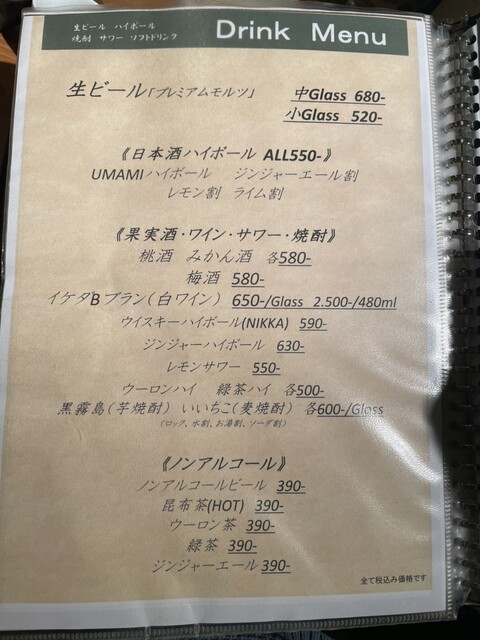 生ビール ハイボール
焼酎 サワー ソフトドリンク
Drink Menu
生ビール「プレミアムモルツ」 中Glass 680-
小Glass 520-
《日本酒ハイボール ALL550-》
UMAMIハイボール ジンジャーエール割
レモン割 ライム割
《果実酒・ワイン・サワー・焼酎》
桃酒 みかん酒 各580-
梅酒 580-
イケダB ブラン(白ワイン) 650-/Glass 2.500-/480ml
ウイスキーハイボール(NIKKA) 590-
ジンジャーハイボール 630-
レモンサワー 550-
ウーロンハイ 緑茶ハイ 各500-
黒霧島(芋焼酎) いいちこ(麦焼酎) 各600-/Glass
(ロック、水割、お湯割、ソーダ割)
《ノンアルコール》
ノンアルコールビール 390-
昆布茶(HOT) 390-
ウーロン茶 390-
緑茶 390-
ジンジャーエール 390-
全て税込み価格です